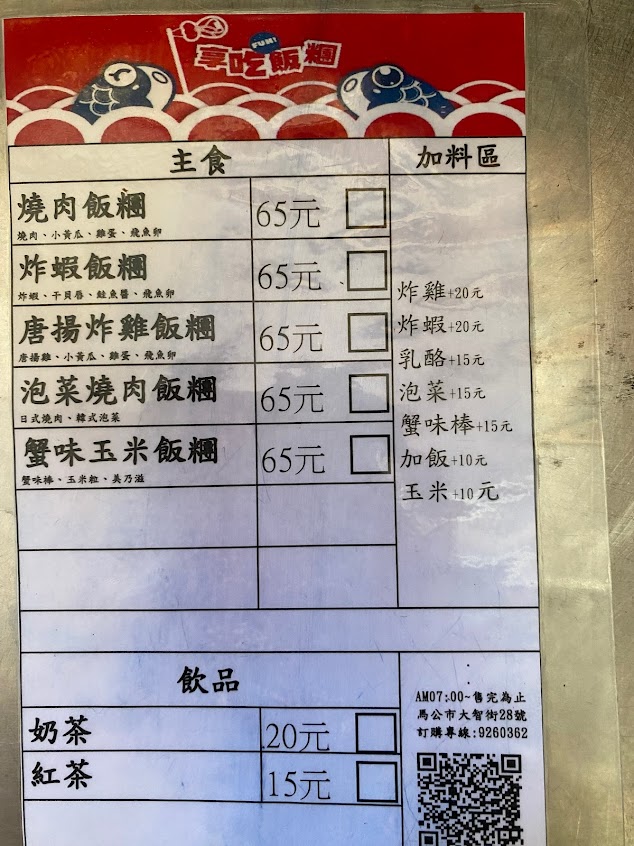 FUN!
享吃飯糰
主食
加料區
燒肉飯糰
燒肉、小黃瓜、雞蛋、飛魚卵
65元
炸蝦飯糰
炸蝦、干貝唇、鮭魚醬、飛魚卵
65元
唐揚炸雞飯糰
唐揚雞、小黃瓜、雞蛋、飛魚卵
65元
泡菜燒肉飯糰
日式燒肉、韓式泡菜
65元
蟹味玉米飯糰
蟹味棒、玉米粒、美乃滋
65元
炸雞+20元
炸蝦+20元
乳酪+15元
泡菜+15元
蟹味棒+15元
加飯+10元
玉米+10元
飲品
奶茶
20元
紅茶
15元
AM07:00~售完為止
馬公市大智街28號
訂購專線:9260362